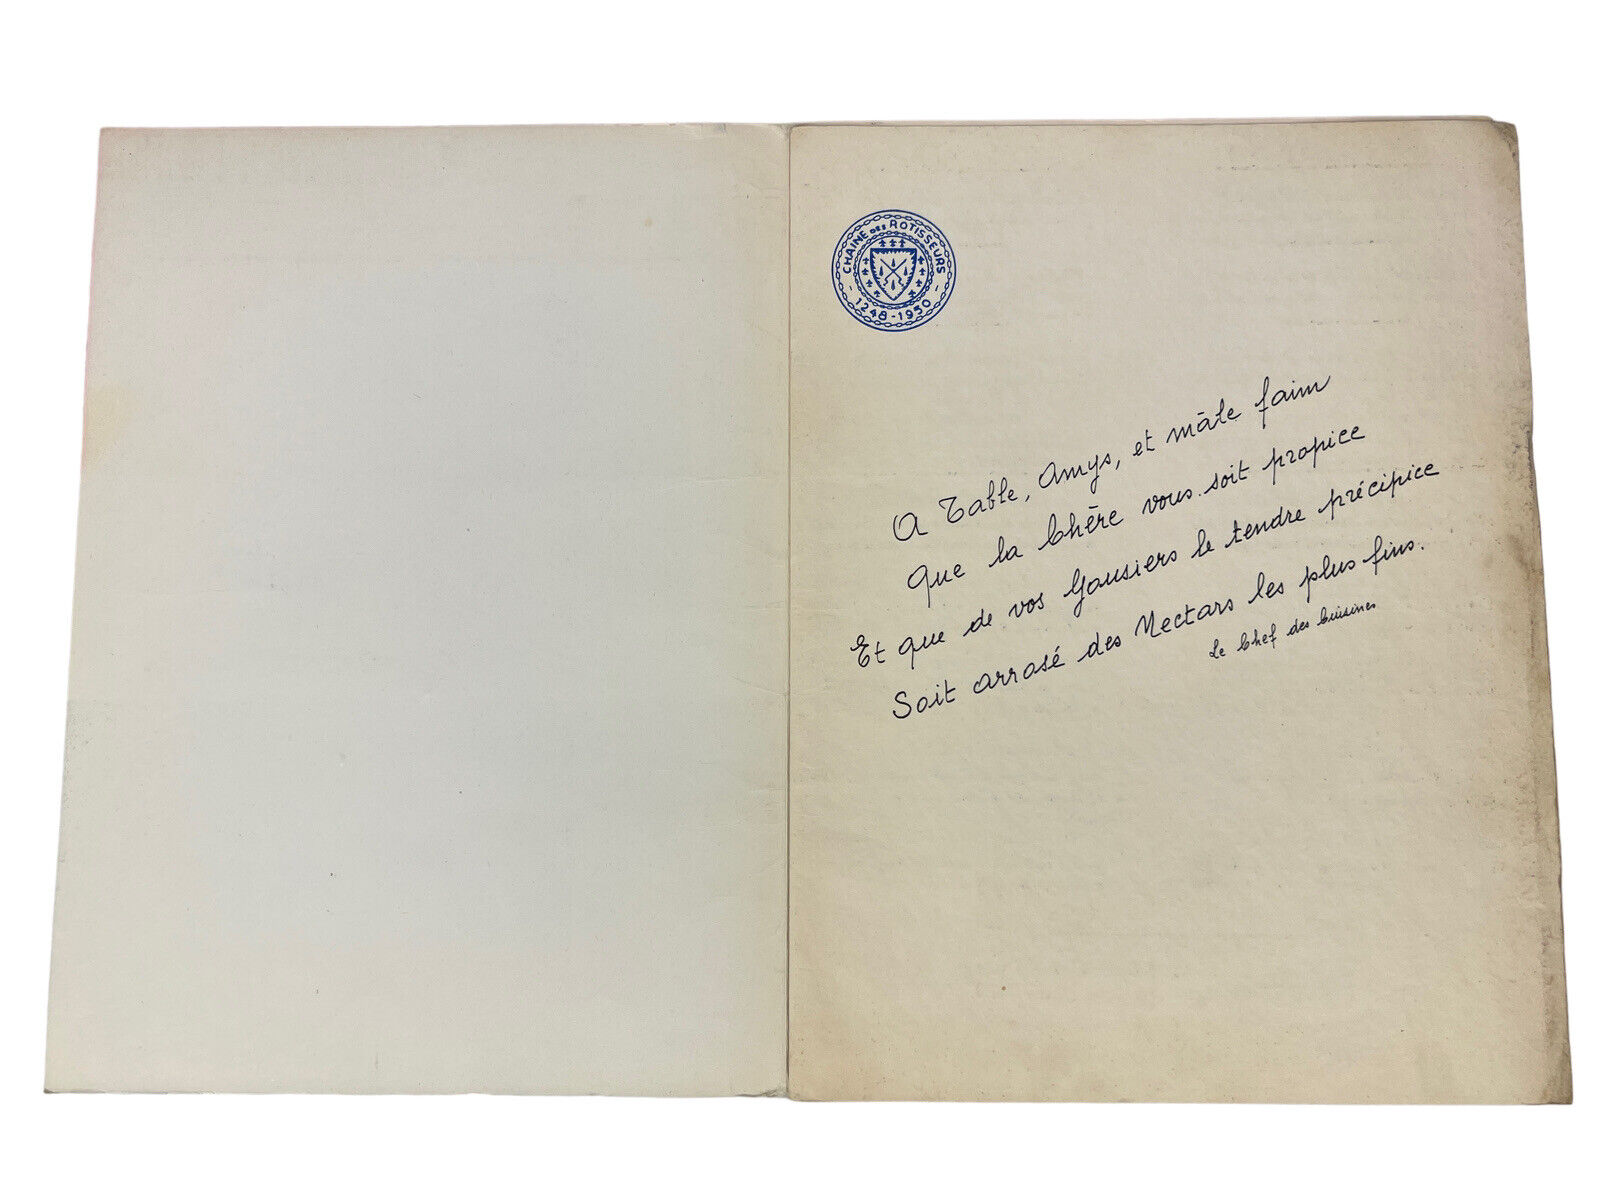 CHAINE DES ROTISSEURS
- 1248 - 1950 -
A Table, Amys, et mâle faim
Que la Chère vous soit propice
Et que de vos Gousiers le tendre précipice
Soit arrosé des Nectars les plus fins.
Le Chef des Cuisines